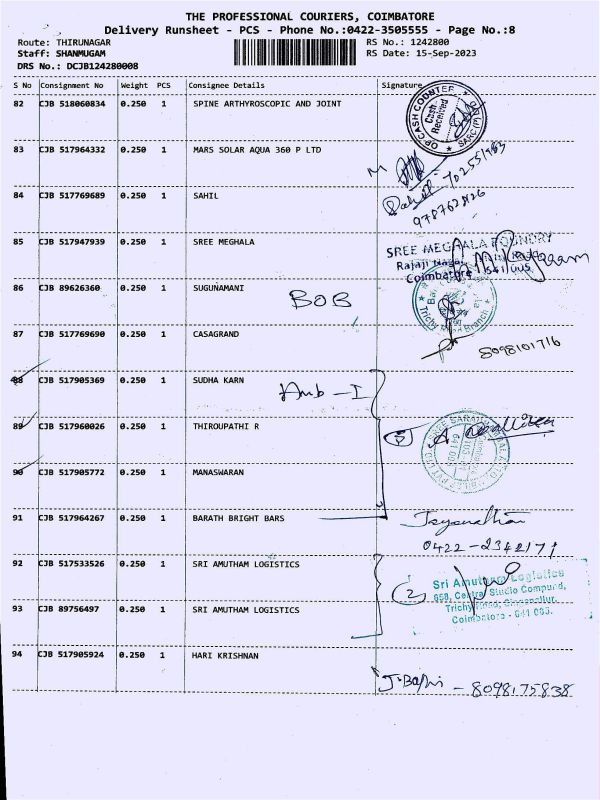 THE PROFESSIONAL COURIERS, COIMBATORE
Delivery Runsheet - PCS - Phone No.:0422-3505555 - Page No.:8
Route: THIRUNAGAR
RS No.: 1242800
Staff: SHANMUGAM
RS Date: 15-Sep-2023
DRS No.: DCJB124280008
S No Consignment No Weight PCS Consignee Details Signature
82 CJB 518060834 0.250 1 SPINE ARTHYROSCOPIC AND JOINT
OP CASH COUNTER
Cash
Received
83 CJB 517964332 0.250 1 MARS SOLAR AQUA 360 P LTD
84 CJB 517769689 0.250 1 SAHIL
85 CJB 517947939 0.250 1 SREE MEGHALA
SREE MEGHALA FOUNDRY
Rajaji Nagar
Coimbatore 641 005
86 CJB 89626360 0.250 1 SUGUNAMANI
BOB
Trichy Road Branch
87 CJB 517769690 0.250 1 CASAGRAND
8098101716
88 CJB 517905369 0.250 1 SUDHA KARN
Amb - I
89 CJB 517960026 0.250 1 THIROUPATHI R
90 CJB 517905772 0.250 1 MANASWARAN
91 CJB 517964267 0.250 1 BARATH BRIGHT BARS
0422-2342171
92 CJB 517533526 0.250 1 SRI AMUTHAM LOGISTICS
(2)
Sri Amutham Logistics
Central Studio Compund,
Trichy Road, Singanallur,
Coimbatore - 641 005.
93 CJB 89756497 0.250 1 SRI AMUTHAM LOGISTICS
94 CJB 517905924 0.250 1 HARI KRISHNAN
- 8098175838